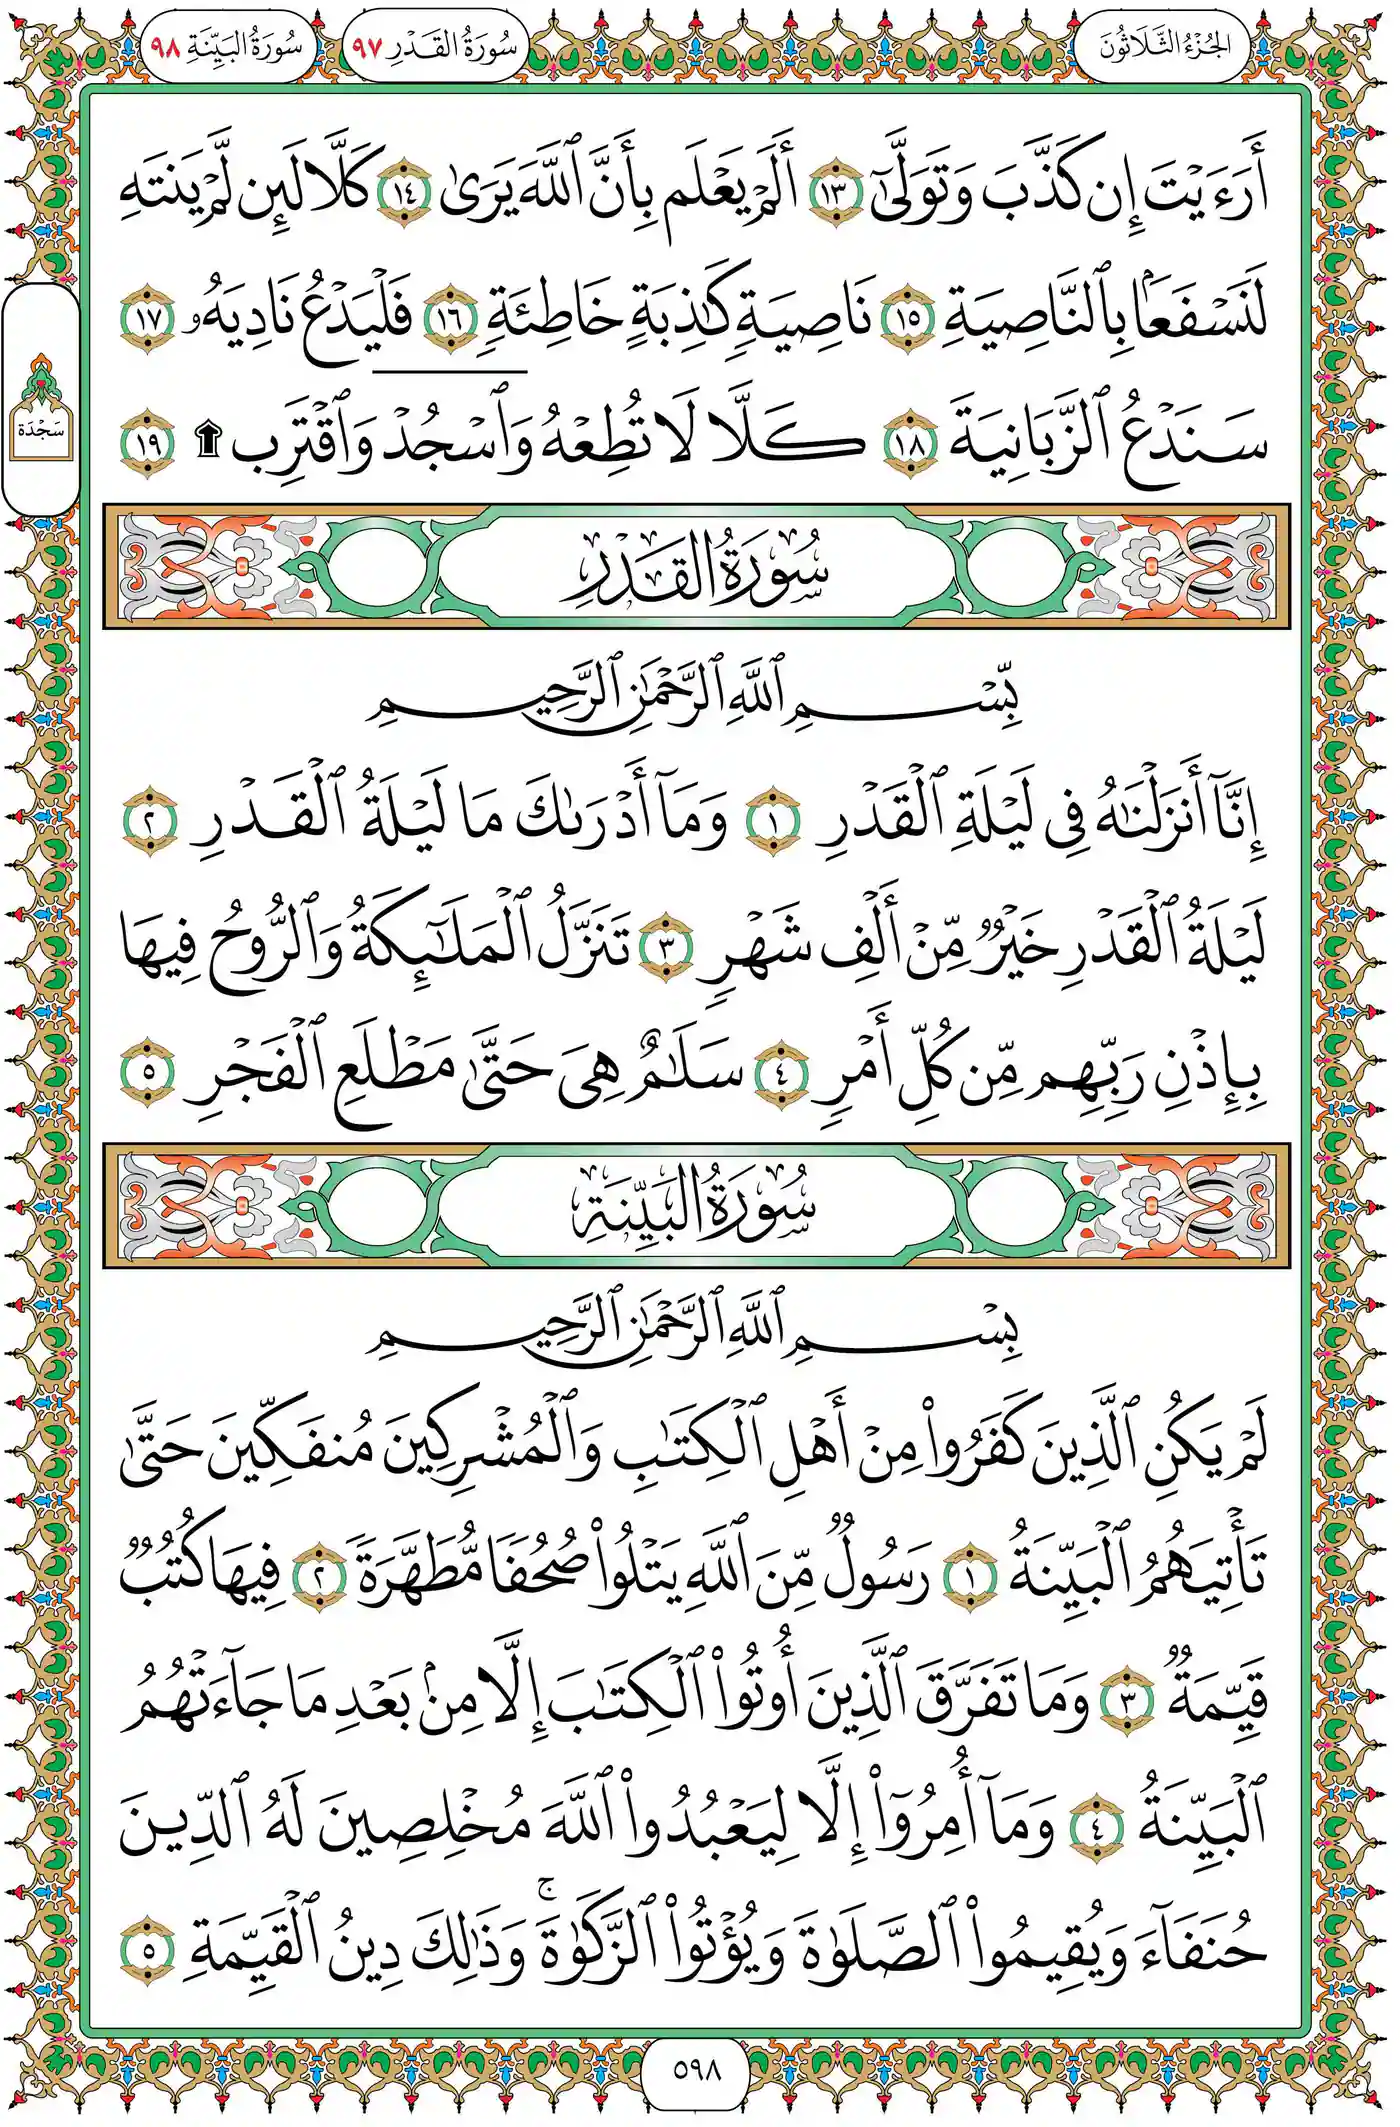 الجُزْءُ الثَّلَاثُونَ
سُورَةُ القَدْرِ ٩٧
سُورَةُ البَيِّنَةِ ٩٨
أَرَءَيْتَ إِن كَذَّبَ وَتَوَلَّىٰٓ ١٣ أَلَمْ يَعْلَم بِأَنَّ ٱللَّهَ يَرَىٰ ١٤ كَلَّا لَئِن لَّمْ يَنتَهِ
لَنَسْفَعَۢا بِٱلنَّاصِيَةِ ١٥ نَاصِيَةٍ كَـٰذِبَةٍ خَاطِئَةٍ ١٦ فَلْيَدْعُ نَادِيَهُۥ ١٧
سَنَدْعُ ٱلزَّبَانِيَةَ ١٨ كَلَّا لَا تُطِعْهُ وَٱسْجُدْ وَٱقْتَرِب ۩ ١٩
سَجْدَة
سُورَةُ القَدْرِ
بِّسْمِ ٱللَّهِ ٱلرَّحْمَـٰنِ ٱلرَّحِيمِ
إِنَّآ أَنزَلْنَـٰهُ فِى لَيْلَةِ ٱلْقَدْرِ ١ وَمَآ أَدْرَىٰكَ مَا لَيْلَةُ ٱلْقَدْرِ ٢
لَيْلَةُ ٱلْقَدْرِ خَيْرٌ مِّنْ أَلْفِ شَهْرٍ ٣ تَنَزَّلُ ٱلْمَلَـٰٓئِكَةُ وَٱلرُّوحُ فِيهَا
بِإِذْنِ رَبِّهِم مِّن كُلِّ أَمْرٍ ٤ سَلَـٰمٌ هِىَ حَتَّىٰ مَطْلَعِ ٱلْفَجْرِ ٥
سُورَةُ البَيِّنَةِ
بِسْمِ ٱللَّهِ ٱلرَّحْمَـٰنِ ٱلرَّحِيمِ
لَمْ يَكُنِ ٱلَّذِينَ كَفَرُوا۟ مِنْ أَهْلِ ٱلْكِتَـٰبِ وَٱلْمُشْرِكِينَ مُنفَكِّينَ حَتَّىٰ
تَأْتِيَهُمُ ٱلْبَيِّنَةُ ١ رَسُولٌ مِّنَ ٱللَّهِ يَتْلُوا۟ صُحُفًا مُّطَهَّرَةً ٢ فِيهَا كُتُبٌ
قَيِّمَةٌ ٣ وَمَا تَفَرَّقَ ٱلَّذِينَ أُوتُوا۟ ٱلْكِتَـٰبَ إِلَّا مِنۢ بَعْدِ مَا جَآءَتْهُمُ
ٱلْبَيِّنَةُ ٤ وَمَآ أُمِرُوٓا۟ إِلَّا لِيَعْبُدُوا۟ ٱللَّهَ مُخْلِصِينَ لَهُ ٱلدِّينَ
حُنَفَآءَ وَيُقِيمُوا۟ ٱلصَّلَوٰةَ وَيُؤْتُوا۟ ٱلزَّكَوٰةَ ۚ وَذَٰلِكَ دِينُ ٱلْقَيِّمَةِ ٥
٥٩٨